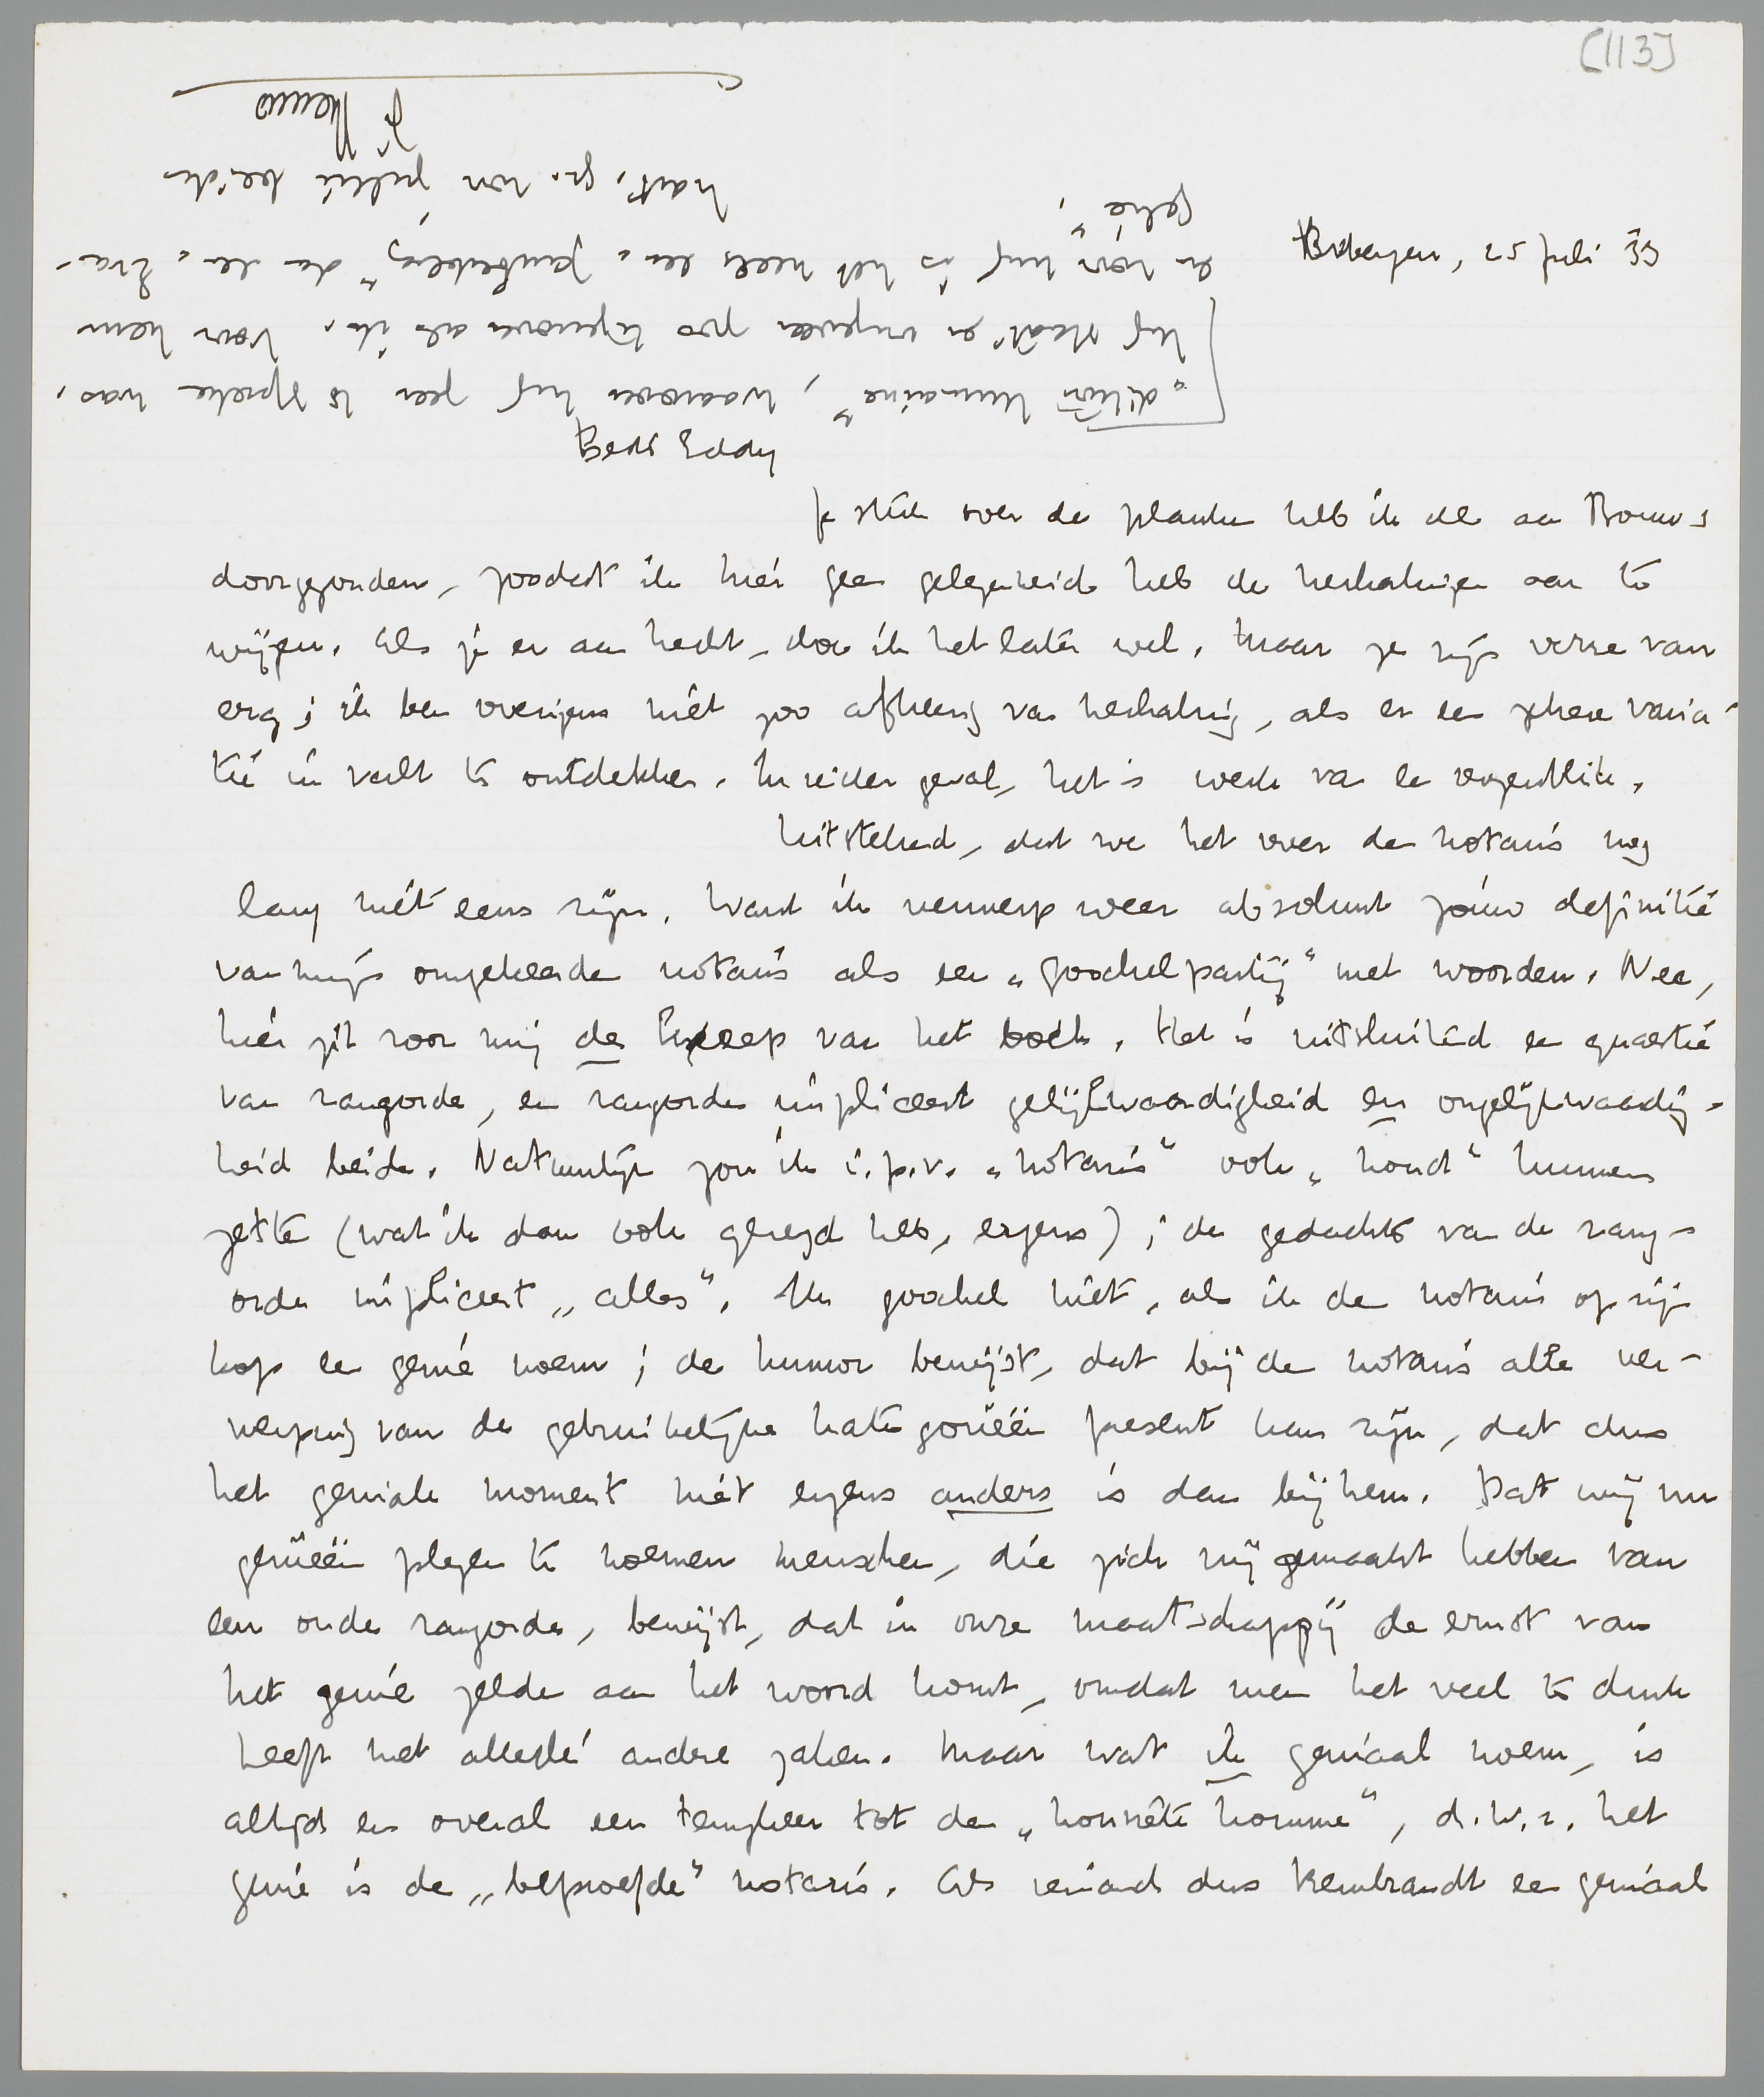 [113]
Bridgen, 25 Juli 33
Beste Eddy
Je stuk over de planten heb ik al aan Bouws
doorgezonden, zoodat ik hier geen gelegenheid heb de herhalingen aan te
wijzen. Als je er aan hecht, doe ik het later wel. Maar ze zijn verre van
erg; ik ben overigens niet zoo afkeerig van herhaling, als er een zekere varia-
tie in valt te ontdekken. In ieder geval, het is werk van een oogenblik.
Uitstekend, dat we het over den notaris nog
lang niet eens zijn. Want ik verwerp weer absoluut jóuw definitie
van mijn omgekeerde notaris als een „goochelpartij" met woorden. Nee,
hier zit voor mij de kneep van het boek. Het is uitsluitend een quaestie
van rangorde, en rangorde impliceert gelijkwaardigheid en ongelijkwaardig-
heid beide. Natuurlijk zou ik i.p.v. „notaris" ook „hond" kunnen
zetten (wat ik dan ook gezegd heb, ergens); de gedachte van de rang-
orde impliceert „alles". Ik goochel niet, als ik de notaris op zijn
kop een genie noem; de humor bewijst, dat bij de notaris alle ver-
werping van de gebruikelijke kategorieën present kan zijn, dat dus
het geniale moment niet ergens anders is dan bij hem. Dat wij nu
genieën plegen te noemen menschen, die zich vrij gemaakt hebben van
een oude rangorde, bewijst, dat in onze maatschappij de ernst van
het genie zelden aan het woord komt, omdat men het veel te druk
heeft met allerlei andere zaken. Maar wat ik geniaal noem, is
altijd en overal een temp tot den „honnête homme", d.w.z. het
genie is de „beproefde" notaris. Als iemand dus Rembrandt een geniaal
„dition humaine", waarover hij zeer te spreken was.
Hij staat er ongeveer zoo tegenover als ik. Voor hem
en vóór hij is het reeds een „ " dan een „Bra-
gelie",
hart. gr. van jullie beider
je Menno